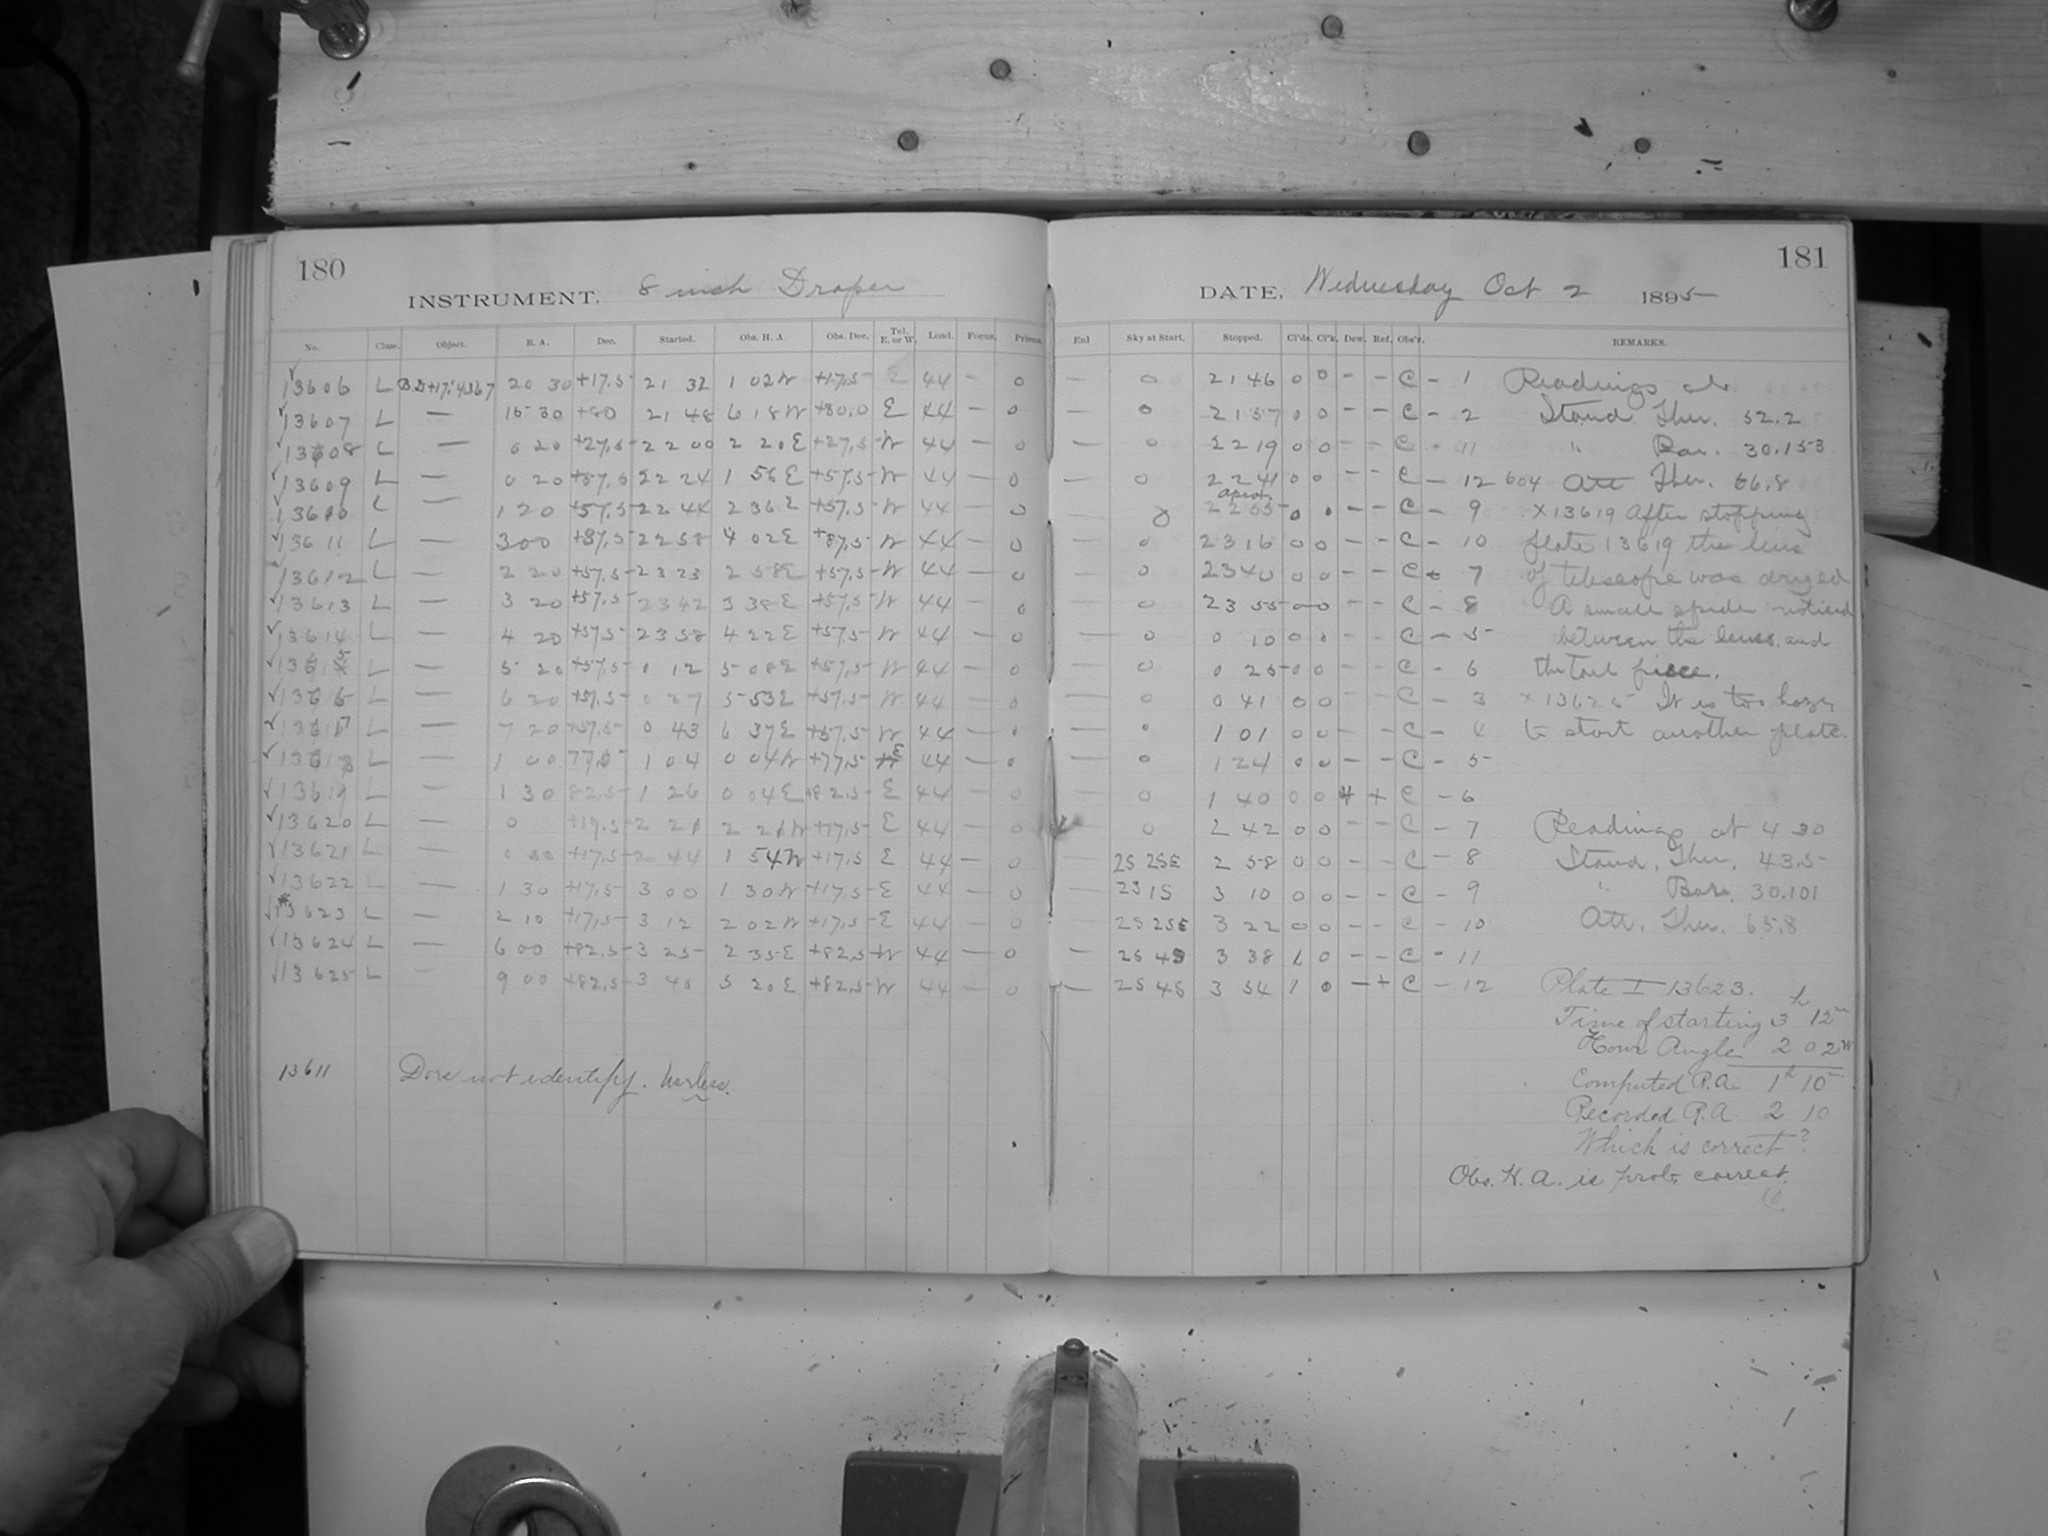 180
INSTRUMENT, 8 inch Draper
No. Class. Object. R. A. Dec. Started. Obs. H. A. Obs. Dec. Tel. E. or W. Load. Focus. Prisms.
✓13606 L B.D+17.°4367 20 30 +17.5 21 32 1 02W +17.5 E 44 — 0
✓13607 L — 15 30 +80 21 48 6 18W +80.0 E 44 — 0
✓13608 L — 0 20 +27.5 22 00 2 20E +27.5 W 44 — 0
✓13609 L — 0 20 +57.5 22 24 1 56E +57.5 W 44 — 0
✓13610 L — 1 20 +57.5 22 44 2 36E +57.5 W 44 — 0
✓13611 L — 3 00 +87.5 22 58 4 02E +87.5 W 44 — 0
✓13612 L — 2 20 +57.5 23 23 2 58E +57.5 W 44 — 0
✓13613 L — 3 20 +57.5 23 42 3 38E +57.5 W 44 — 0
✓13614 L — 4 20 +57.5 23 58 4 22E +57.5 W 44 — 0
✓13615 L — 5 20 +57.5 0 12 5 08E +57.5 W 44 — 0
✓13616 L — 6 20 +57.5 0 27 5 53E +57.5 W 44 — 0
✓13617 L — 7 20 +57.5 0 43 6 37E +57.5 W 44 — 0
✓13618 L — 1 00 77.5 1 04 0 04W +77.5 E 44 — 0
✓13619 L — 1 30 82.5 1 26 0 04E +82.5 E 44 — 0
✓13620 L — 0 +17.5 2 21 2 21W +17.5 E 44 — 0
✓13621 L — 0 50 +17.5 2 44 1 54W +17.5 E 44 — 0
✓13622 L — 1 30 +17.5 3 00 1 30W +17.5 E 44 — 0
✓13623 L — 2 10 +17.5 3 12 2 02W +17.5 E 44 — 0
✓13624 L — 6 00 +82.5 3 25 2 35E +82.5 W 44 — 0
✓13625 L — 9 00 +82.5 3 40 5 20E +82.5 W 44 — 0
13611 Dore not identify. Useless.
181
DATE, Wednesday Oct 2 1895
Exl Sky at Start. Stopped. Cl'ds. Cl'k. Dew. Ref. Obs'r. REMARKS.
— 0 21 46 0 0 - - C - 1 Readings at
— 0 21 57 0 0 - - C - 2 Stand Ther. 52.2
— 0 22 19 0 0 - - C - 11 " Bar. 30.153
— 0 22 41 0 0 - - C - 12 604 Att Ther. 66.8
— 0 aprox. 22 55 0 0 - - C - 9 x13619 After stopping
— 0 23 16 0 0 - - C - 10 plate 13619 the lens
— 0 23 40 0 0 - - C - 7 of telescope was dryed
— 0 23 55 0 0 - - C - 8 A small spider noticed
— 0 0 10 0 0 - - C - 5 between the lenses and
— 0 0 25 0 0 - - C - 6 the tail piece.
— 0 0 41 0 0 - - C - 3 x 13625 It is too hazy
— 0 1 01 0 0 - - C - 4 to start another plate.
— 0 1 24 0 0 - - C - 5
— 0 1 40 0 0 + + C - 6
— 0 2 42 0 0 - - C - 7 Readings at 4 30
— 2S 2SE 2 58 0 0 - - C - 8 Stand. Ther. 43.5
— 2S 1S 3 10 0 0 - - C - 9 " Bar. 30.101
— 2S 2SE 3 22 0 0 - - C - 10 Att. Ther. 65.8
— 2S 4S 3 38 1 0 - - C - 11
— 2S 4S 3 54 1 0 - + C - 12 Plate I 13623.
Time of starting 3h 12m
Hour Angle 2 02W
Computed R.A. 1h 10m
Recorded R.A 2 10
Which is correct?
Obs. H. A. is prob. correct.
C.